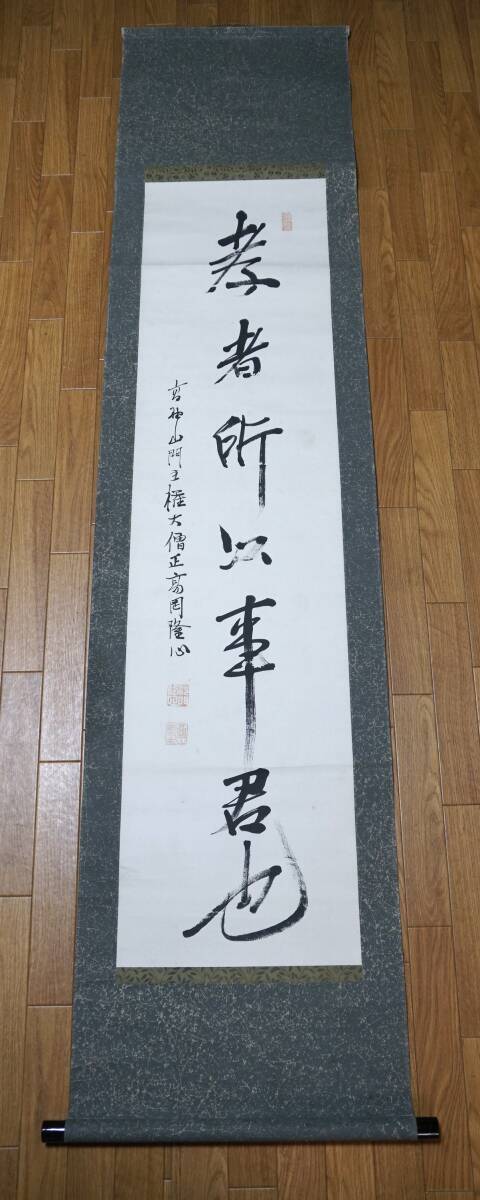 孝者所以事君也
高野山門主権大僧正高岡隆心